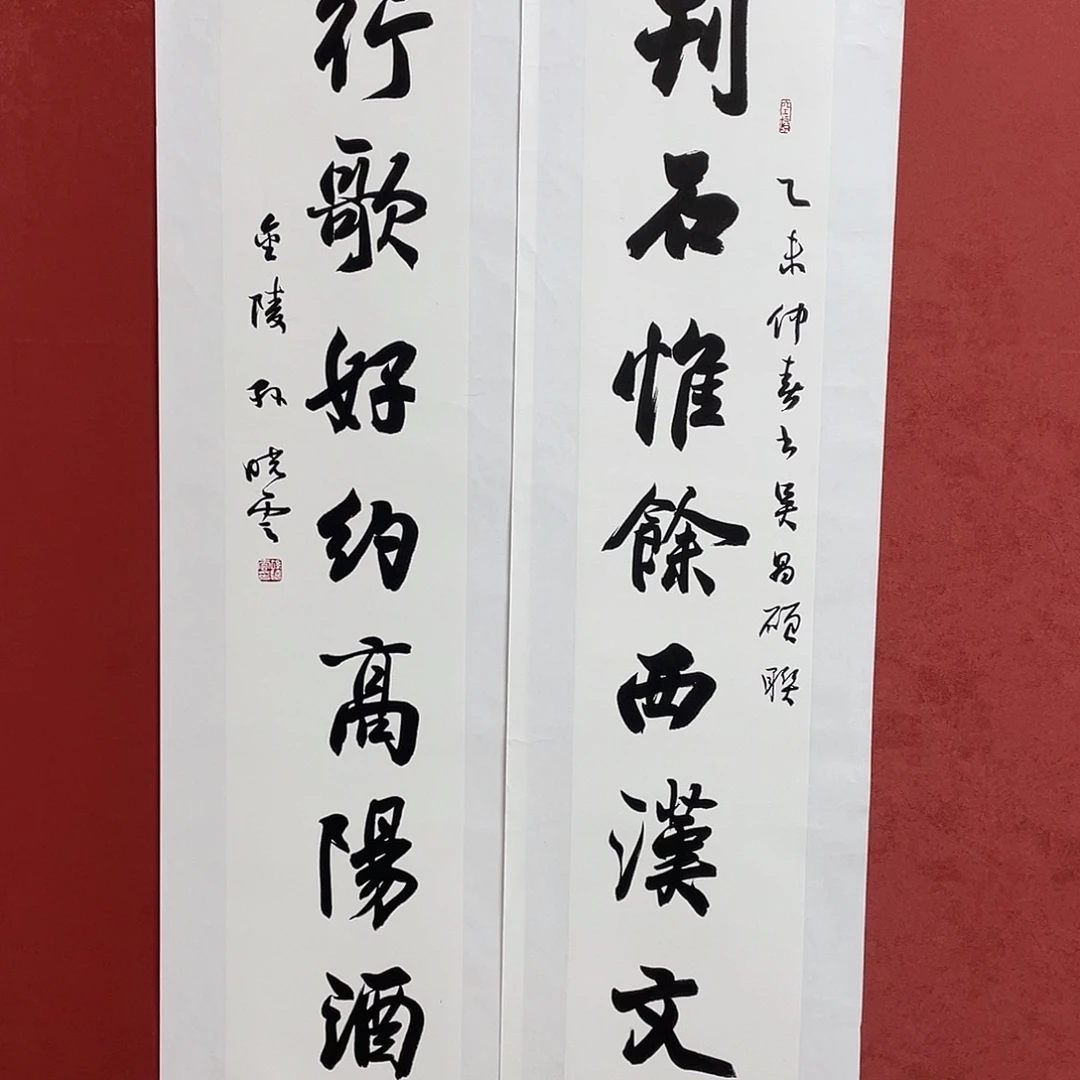 刊石惟餘西漢文
乙未仲春書吳昌碩聯
行歌好約高陽酒
金陵孫曉雲